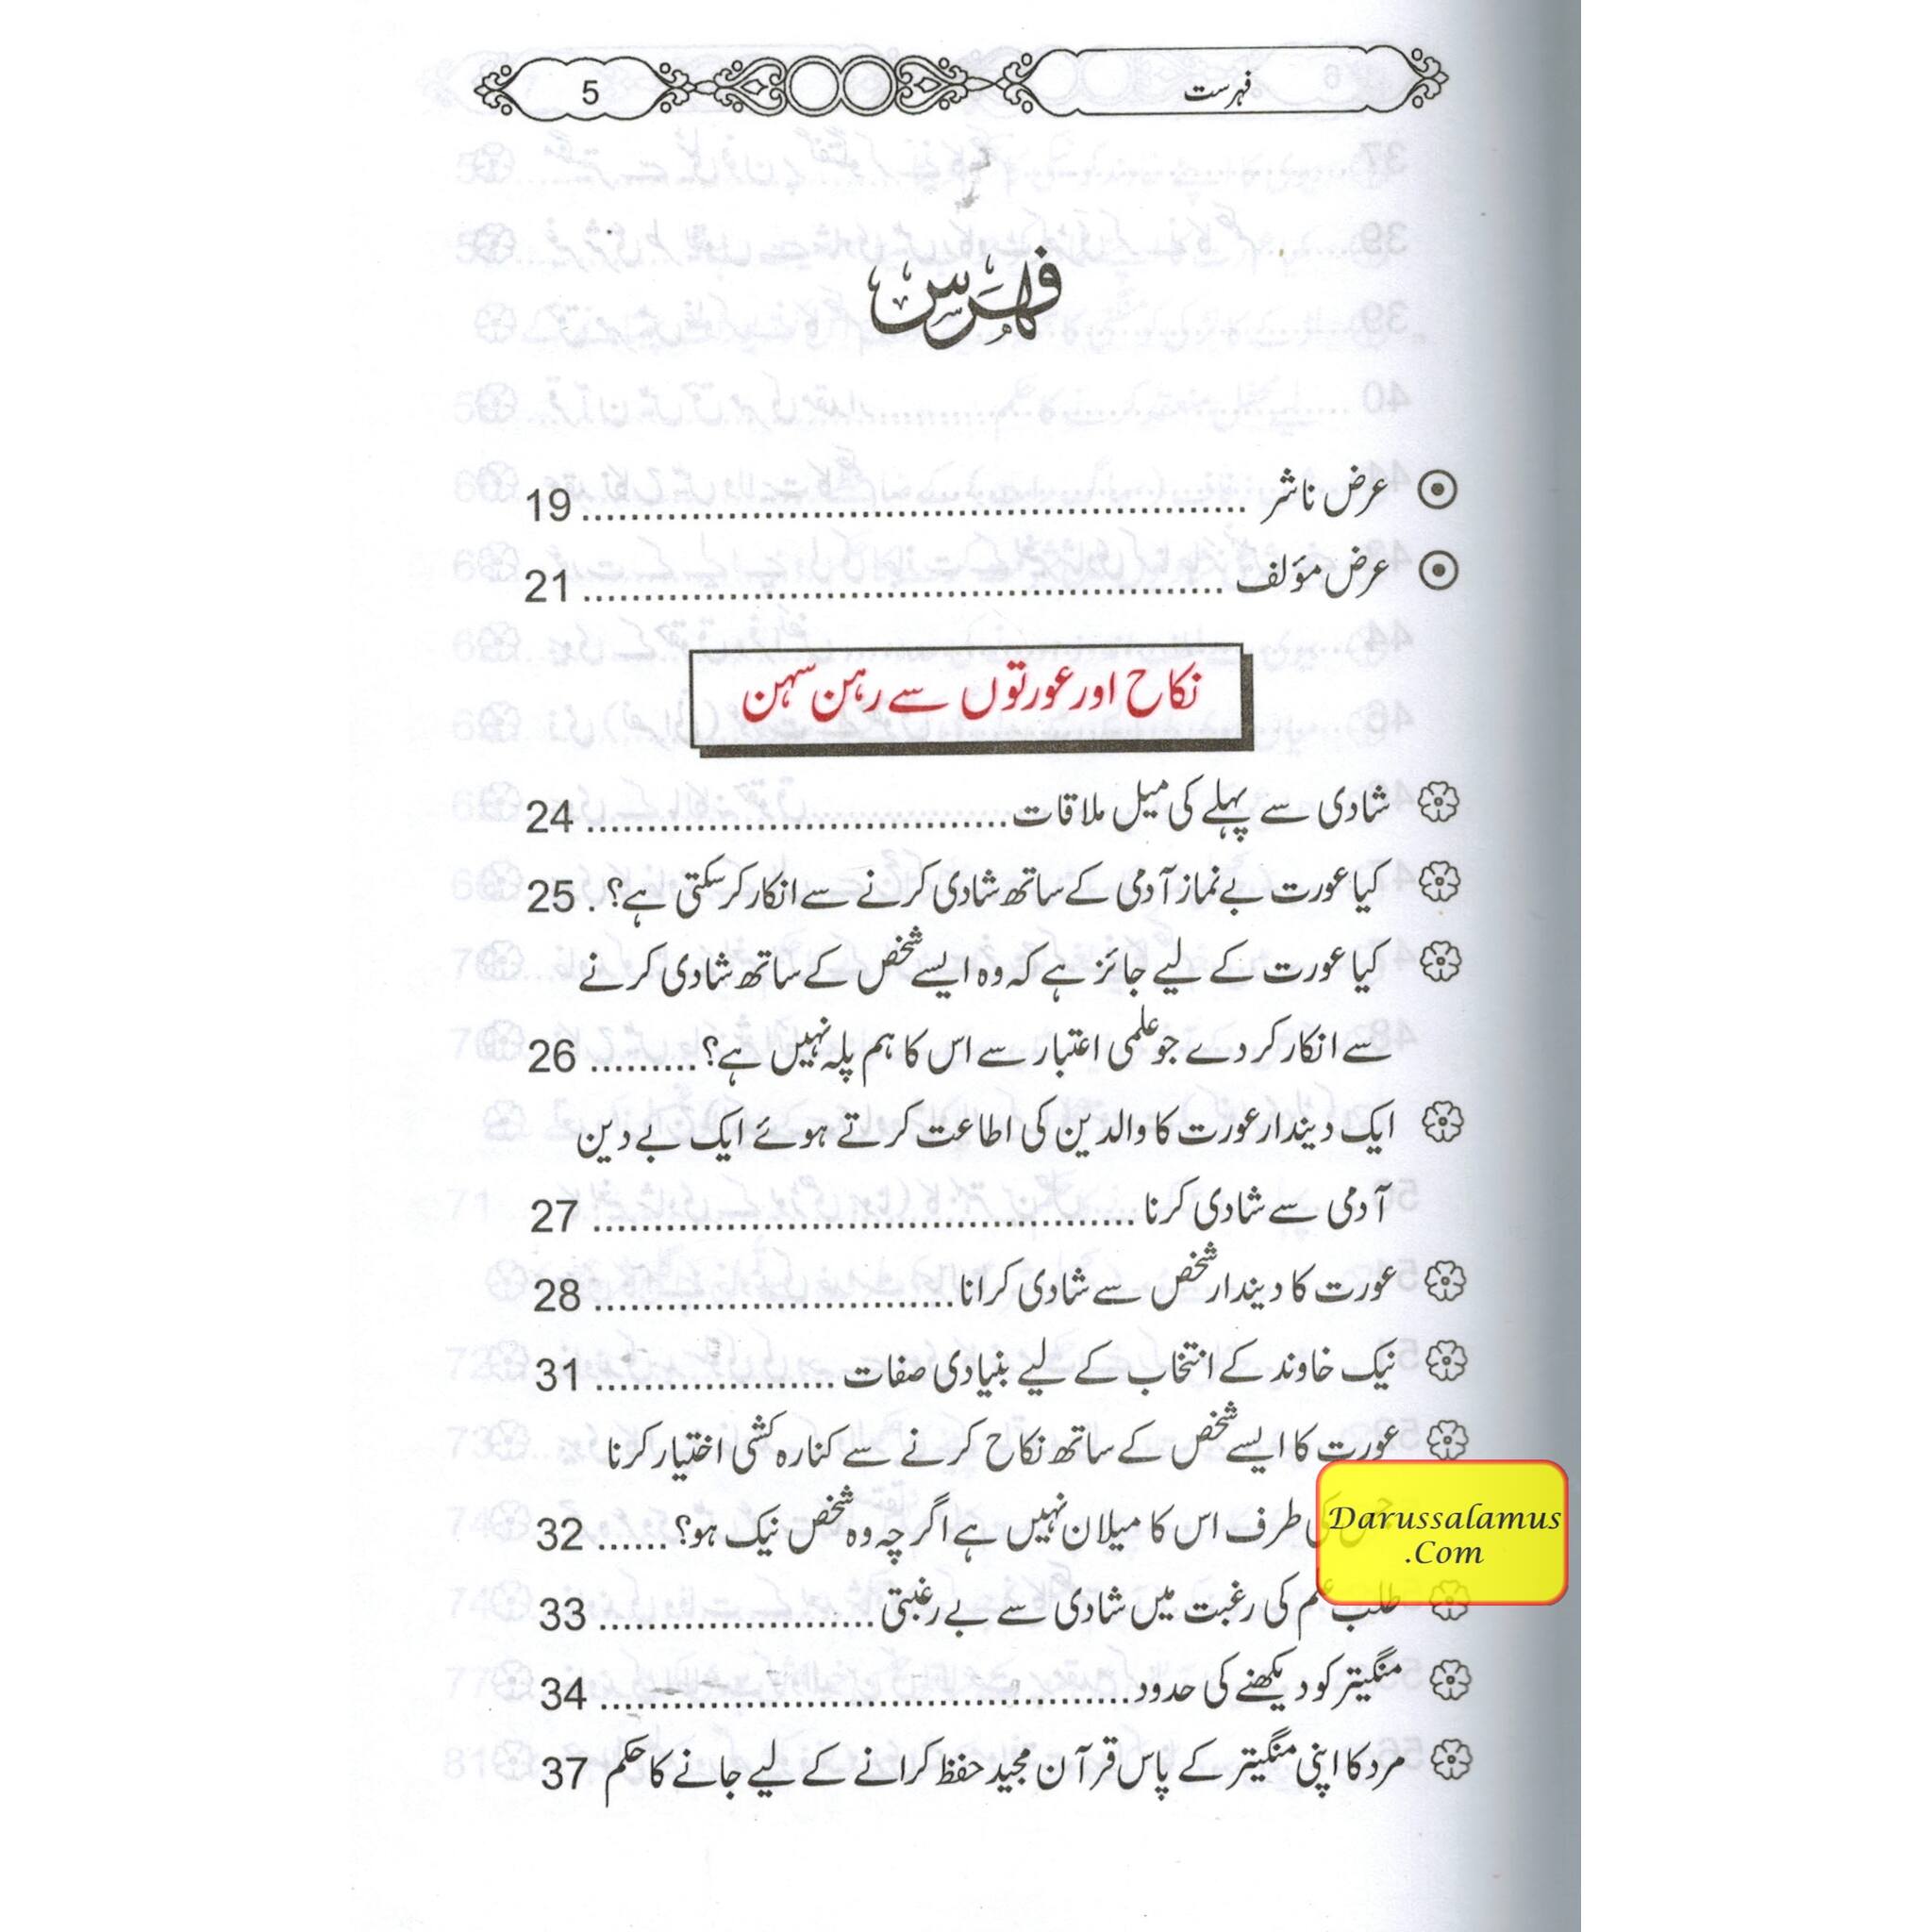 فہرست 5
فہرس
عرض ناشر 19
عرض مؤلف 21
نکاح اور عورتوں سے رہن سہن
شادی سے پہلے کی میل ملاقات 24
کیا عورت بے نماز آدمی کے ساتھ شادی کرنے سے انکار کر سکتی ہے؟ 25
کیا عورت کے لیے جائز ہے کہ وہ ایسے شخص کے ساتھ شادی کرنے
سے انکار کر دے جو علمی اعتبار سے اس کا ہم پلہ نہیں ہے؟ 26
ایک دیندار عورت کا والدین کی اطاعت کرتے ہوئے ایک بے دین
آدمی سے شادی کرنا 27
عورت کا دیندار شخص سے شادی کرانا 28
نیک خاوند کے انتخاب کے لیے بنیادی صفات 31
عورت کا ایسے شخص کے ساتھ نکاح کرنے سے کنارہ کشی اختیار کرنا
کی طرف اس کا میلان نہیں ہے اگر چہ وہ شخص نیک ہو؟ 32
Darussalamus
.Com
طلب علم کی رغبت میں شادی سے بے رغبتی 33
منگیتر کو دیکھنے کی حدود 34
مرد کا اپنی منگیتر کے پاس قرآن مجید حفظ کرانے کے لیے جانے کا حکم 37